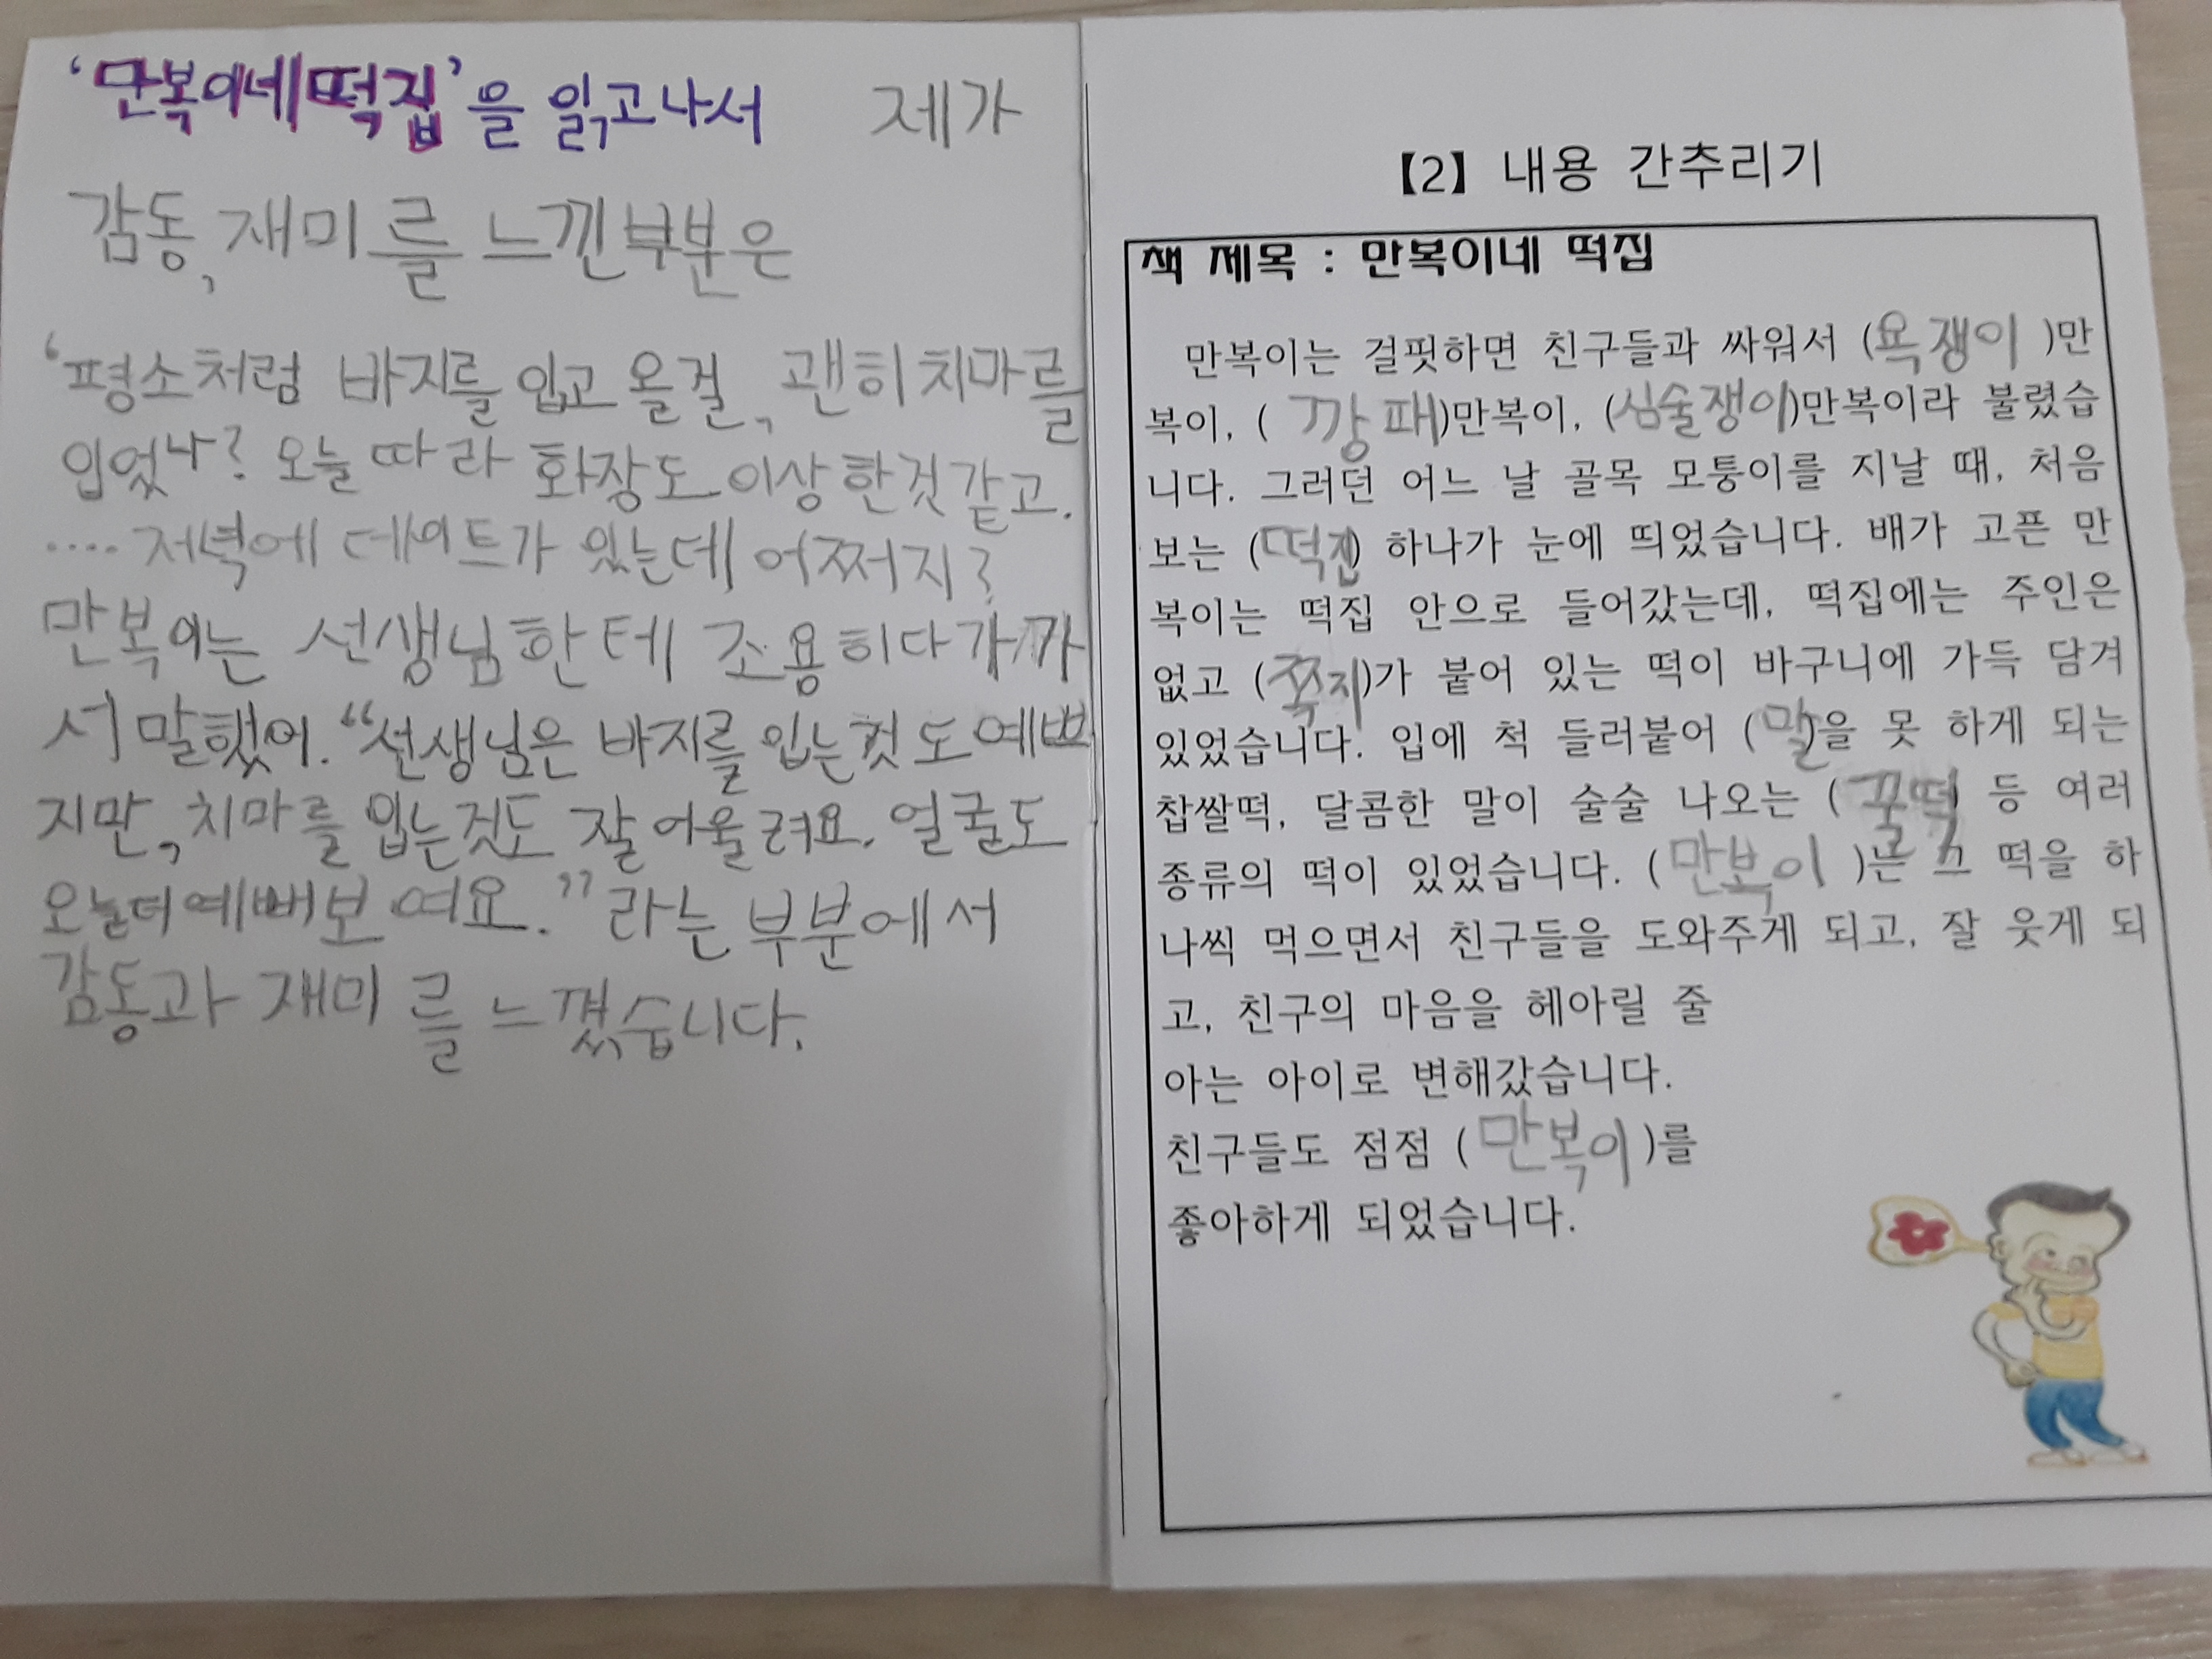 ‘만복이네떡집’을 읽고나서 제가
감동, 재미를 느낀부분은
‘평소처럼 바지를 입고 올걸, 괜히 치마를
입었나? 오늘 따라 화장도 이상한것같고.
.... 저녁에 데이트가 있는데 어쩌지?
만복이는 선생님한테 조용히다가가
서 말했어. “선생님은 바지를 입는것도예쁘
지만, 치마를 입는것도 잘어울려요. 얼굴도
오늘더예뻐보여요.”라는 부분에서
감동과 재미를 느꼈습니다.
【2】 내용 간추리기
책 제목 : 만복이네 떡집
만복이는 걸핏하면 친구들과 싸워서 (욕쟁이 )만
복이, ( 깡패)만복이, (심술쟁이)만복이라 불렸습
니다. 그러던 어느 날 골목 모퉁이를 지날 때, 처음
보는 (떡집) 하나가 눈에 띄었습니다. 배가 고픈 만
복이는 떡집 안으로 들어갔는데, 떡집에는 주인은
없고 (쪽지)가 붙어 있는 떡이 바구니에 가득 담겨
있었습니다. 입에 척 들러붙어 (말)을 못 하게 되는
찹쌀떡, 달콤한 말이 술술 나오는 (꿀떡) 등 여러
종류의 떡이 있었습니다. (만복이 )는 그 떡을 하
나씩 먹으면서 친구들을 도와주게 되고, 잘 웃게 되
고, 친구의 마음을 헤아릴 줄
아는 아이로 변해갔습니다.
친구들도 점점 ( 만복이 )를
좋아하게 되었습니다.